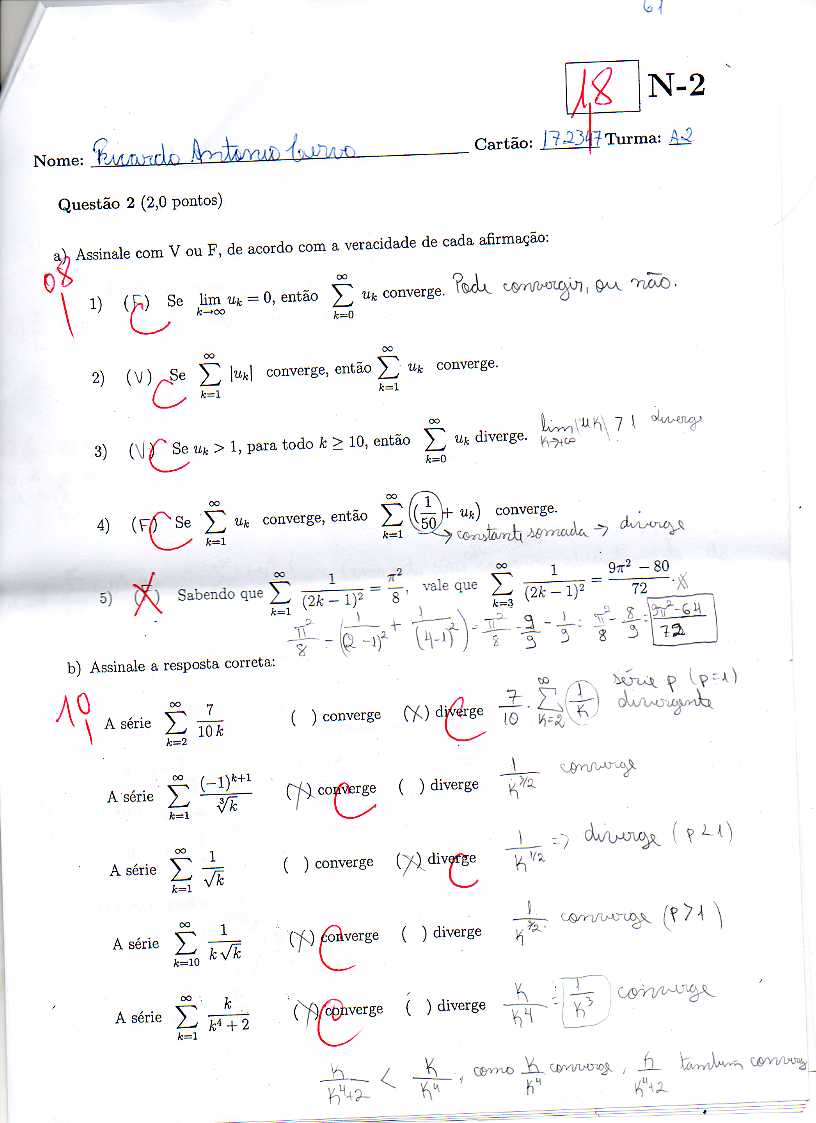 61
1,8 N-2
Nome: Ricardo Antonio Cartão: 172347 Turma: A2
Questão 2 (2,0 pontos)
a) Assinale com V ou F, de acordo com a veracidade de cada afirmação:
0,8
1) (F) Se lim_{k→∞} u_k = 0, então ∑_{k=0}^{∞} u_k converge. Pode convergir, ou não.
2) (V) Se ∑_{k=1}^{∞} |u_k| converge, então ∑_{k=1}^{∞} u_k converge.
3) (V) Se u_k > 1, para todo k ≥ 10, então ∑_{k=0}^{∞} u_k diverge. lim_{k→∞} |uk| > 1 diverge
4) (F) Se ∑_{k=1}^{∞} u_k converge, então ∑_{k=1}^{∞} (1/50 + u_k) converge.
→ constante somada → diverge
5) (F) Sabendo que ∑_{k=1}^{∞} 1/(2k − 1)² = π²/8, vale que ∑_{k=3}^{∞} 1/(2k − 1)² = (9π² − 80)/72.
π²/8 − (1/(2−1)² + 1/(4−1)²) = π²/8 − 9/9 − 1/9 = π²/8 − 8/9 = (9π²−64)/72
b) Assinale a resposta correta:
1,0
A série ∑_{k=2}^{∞} 7/(10k) ( ) converge (X) diverge 7/10 · ∑_{k=2}^{∞} (1/k) série p (p=1)
divergente
A série ∑_{k=1}^{∞} (−1)^{k+1}/∛k (X) converge ( ) diverge 1/k^{3/2} converge
A série ∑_{k=1}^{∞} 1/√k ( ) converge (X) diverge 1/k^{1/2} => diverge (p<1)
A série ∑_{k=10}^{∞} 1/(k√k) (X) converge ( ) diverge 1/k^{3/2} converge (p>1)
A série ∑_{k=1}^{∞} k/(k⁴ + 2) (X) converge ( ) diverge k/k⁴ = 1/k³ converge
k/(k⁴+2) < k/k⁴, como k/k⁴ converge, k/(k⁴+2) também converg